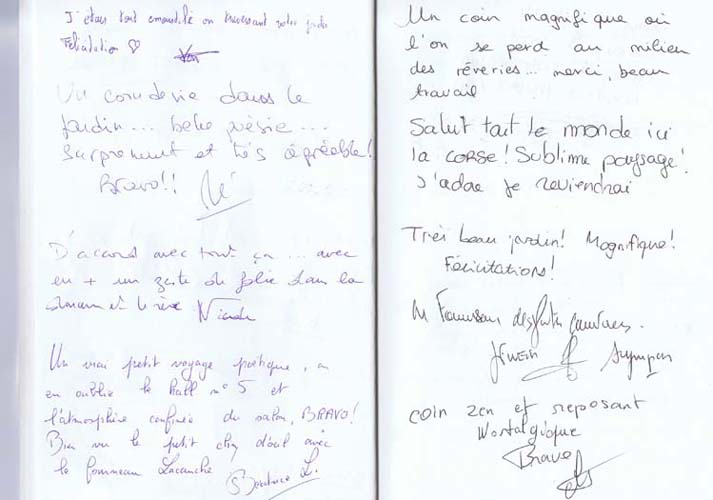 J'étais tout émoustillé en traversant votre jardin
Félicitation ♡
Un coin de vie dans le
jardin... belle poésie...
Surprenant et très agréable!
Bravo!!
D'accord avec tout ça... avec
en + un zeste de folie dans la
et le rêve
Un vrai petit voyage poétique, on
en oublie le hall n° 5 et
l'atmosphère confinée du salon, BRAVO!
Bien vu le petit clin d'oeil avec
le fourneau Lacanche
Béatrice L.
Un coin magnifique où
l'on se perd au milieu
des rêveries... merci, beau
travail
Salut tout le monde ici
la CORSE! Sublime paysage!
J'adore je reviendrai
Très beau jardin! Magnifique!
Félicitations!
M
coin zen et reposant
Nostalgique
Bravo